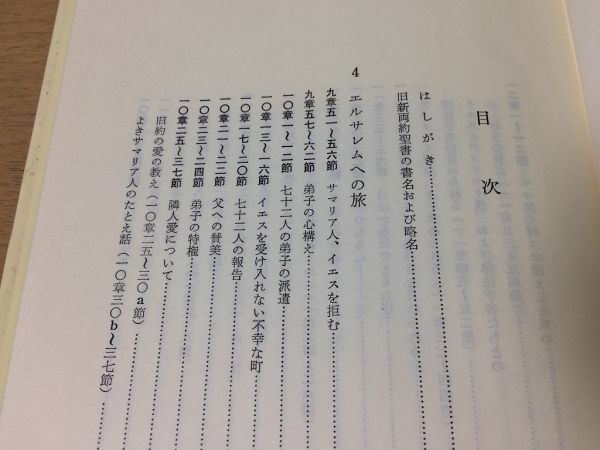 目次
はしがき
旧新両約聖書の書名および略名
4 エルサレムへの旅
九章五一〜五六節 サマリア人、イエスを拒む
九章五七〜六二節 弟子の心構え
一〇章一〜一二節 七十二人の弟子の派遣
一〇章一三〜一六節 イエスを受け入れない不幸な町
一〇章一七〜二〇節 七十二人の報告
一〇章二一〜二二節 父への賛美
一〇章二三〜二四節 弟子の特権
一〇章二五〜三七節 隣人愛について
旧約の愛の教え(一〇章二五〜三〇a節)
よきサマリア人のたとえ話(一〇章三〇b〜三七節)